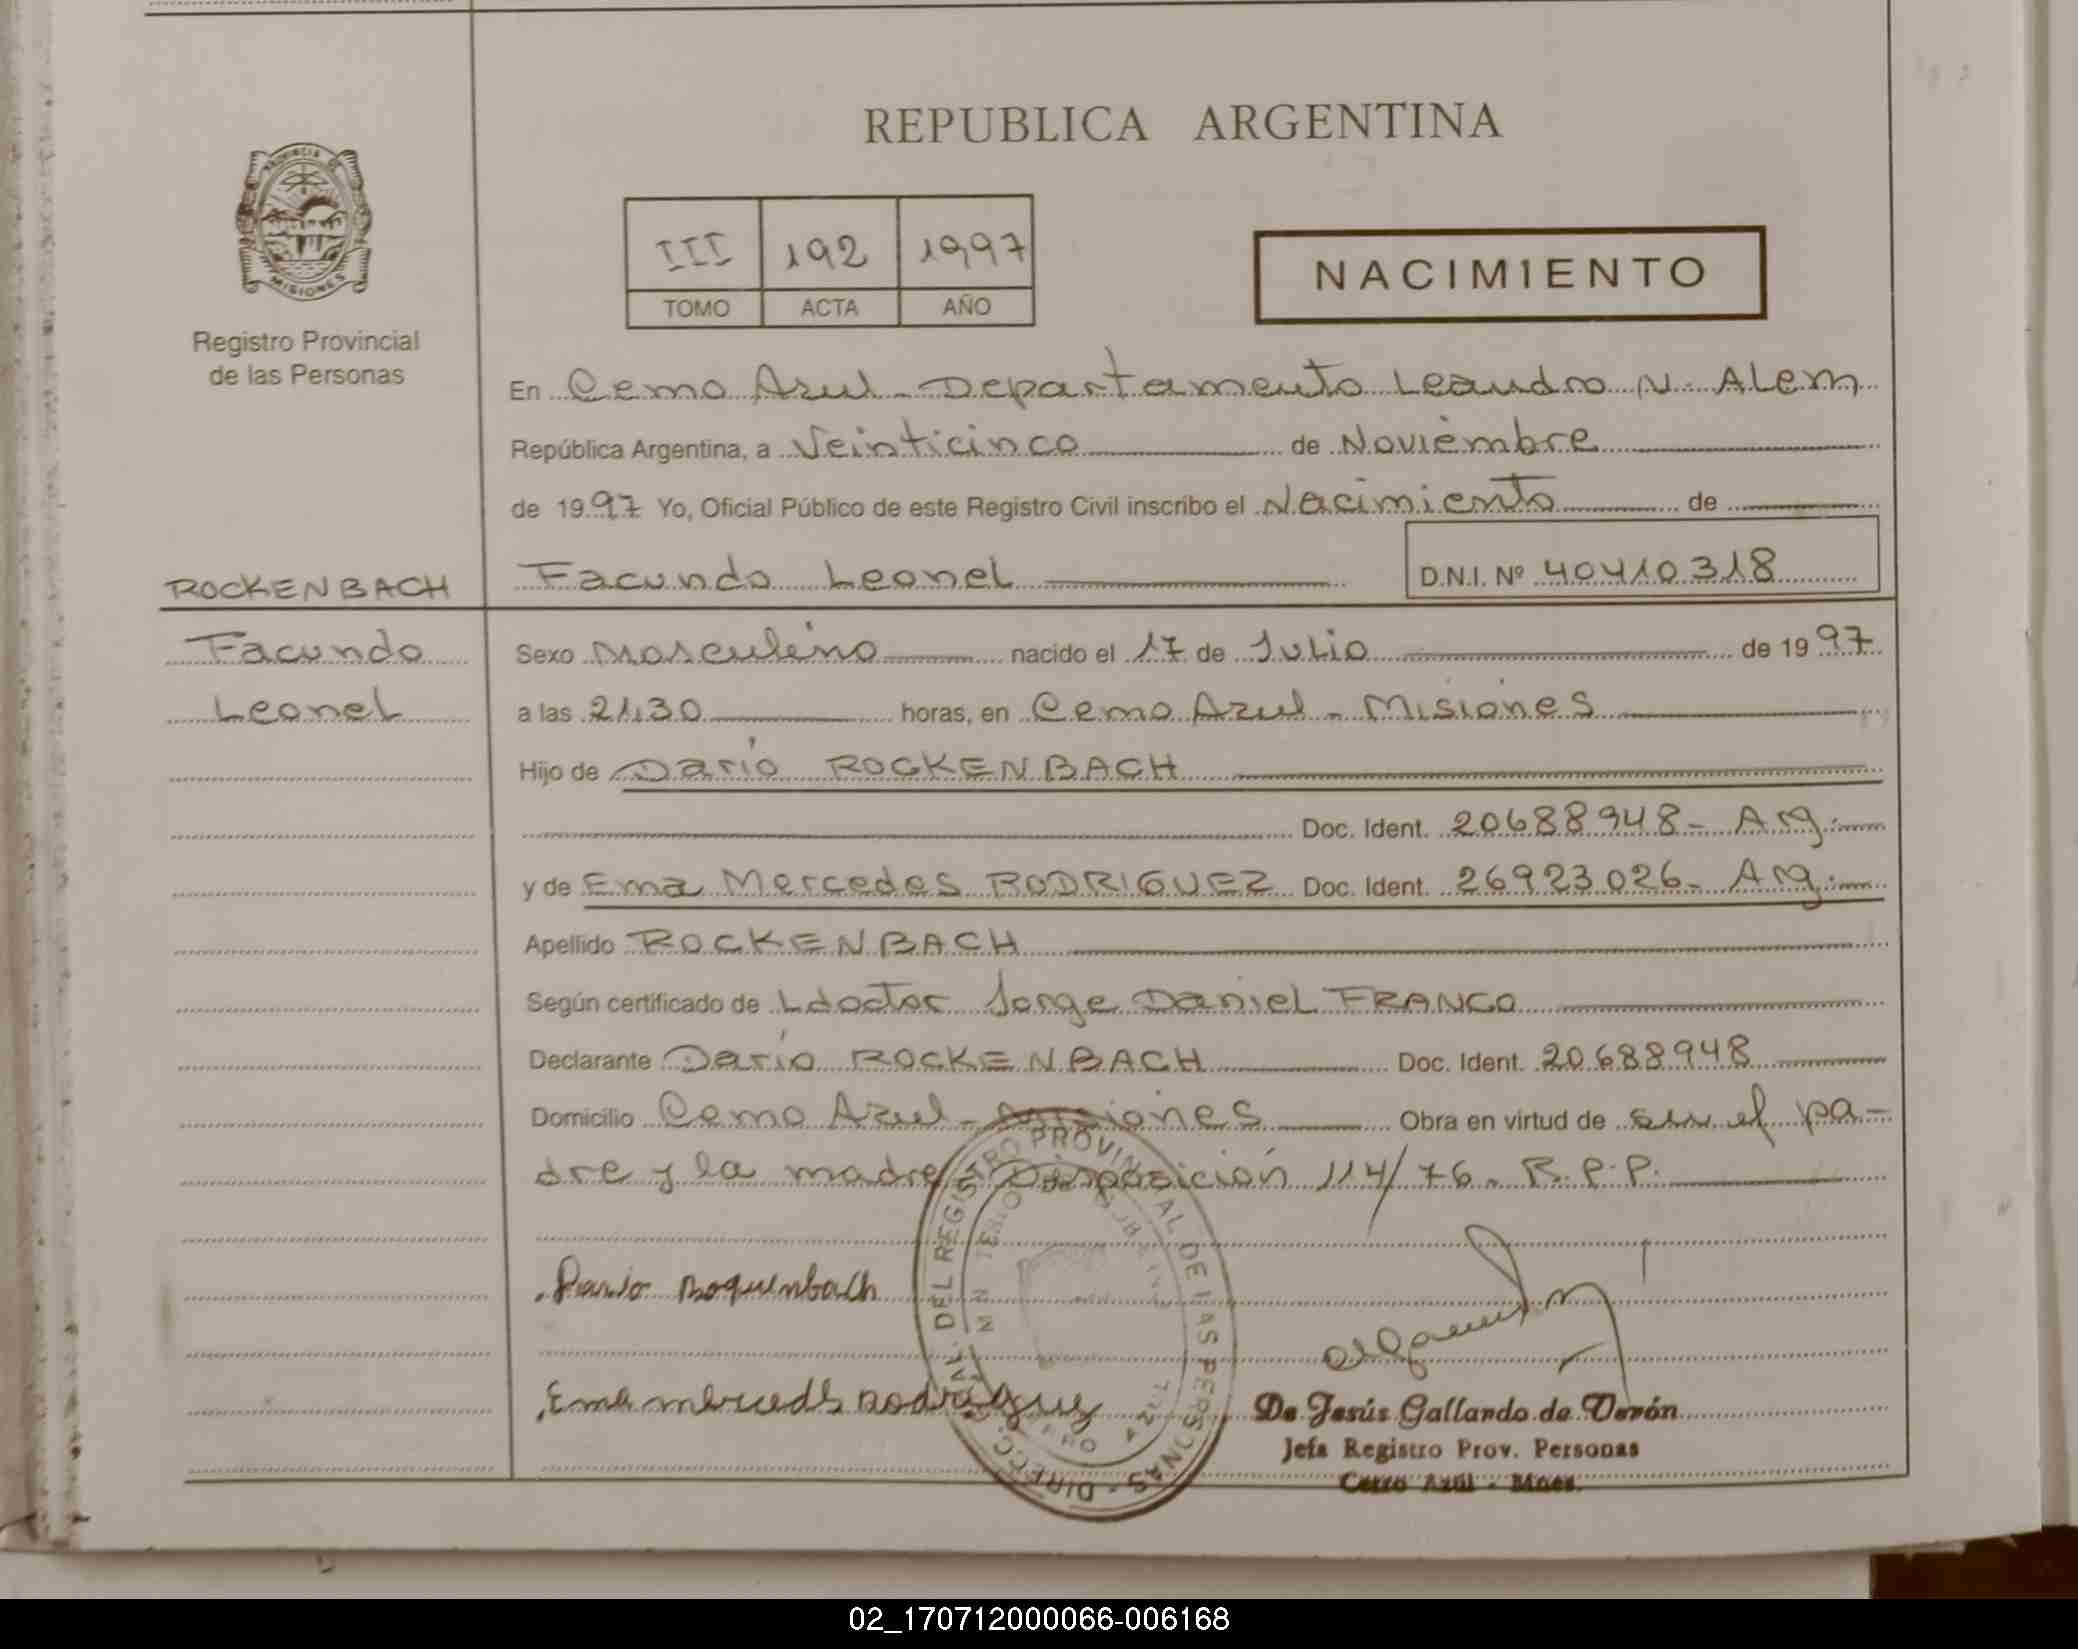 REPUBLICA ARGENTINA
PROVINCIA DE
MISIONES
Registro Provincial
de las Personas
III 192 1997
TOMO ACTA AÑO
NACIMIENTO
En Cerro Azul - Departamento Leandro N. Alem
República Argentina, a Veinticinco de Noviembre
de 1997 Yo, Oficial Público de este Registro Civil inscribo el Nacimiento de
Facundo Leonel D.N.I. Nº 40410318
ROCKENBACH
Facundo
Leonel
Sexo Masculino nacido el 17 de Julio de 1997
a las 21,30 horas, en Cerro Azul - Misiones
Hijo de Darío ROCKENBACH
Doc. Ident. 20688948- Arg.
y de Ema Mercedes RODRIGUEZ Doc. Ident. 26923026- Arg.
Apellido ROCKENBACH
Según certificado de Ldoctor Jorge Daniel FRANCO
Declarante Darío ROCKENBACH Doc. Ident. 20688948
Domicilio Cerro Azul - Misiones Obra en virtud de ser el pa-
dre y la madre Disposición 114/76. R.P.P.
Dario Roquenbach
Ema mercedes Rodriguez
DIRECC. GRAL. DEL REGISTRO PROVINCIAL DE LAS PERSONAS
CERRO AZUL
De Jesús Gallardo de Verón
Jefa Registro Prov. Personas
Cerro Azul - Mnes.
02_170712000066-006168